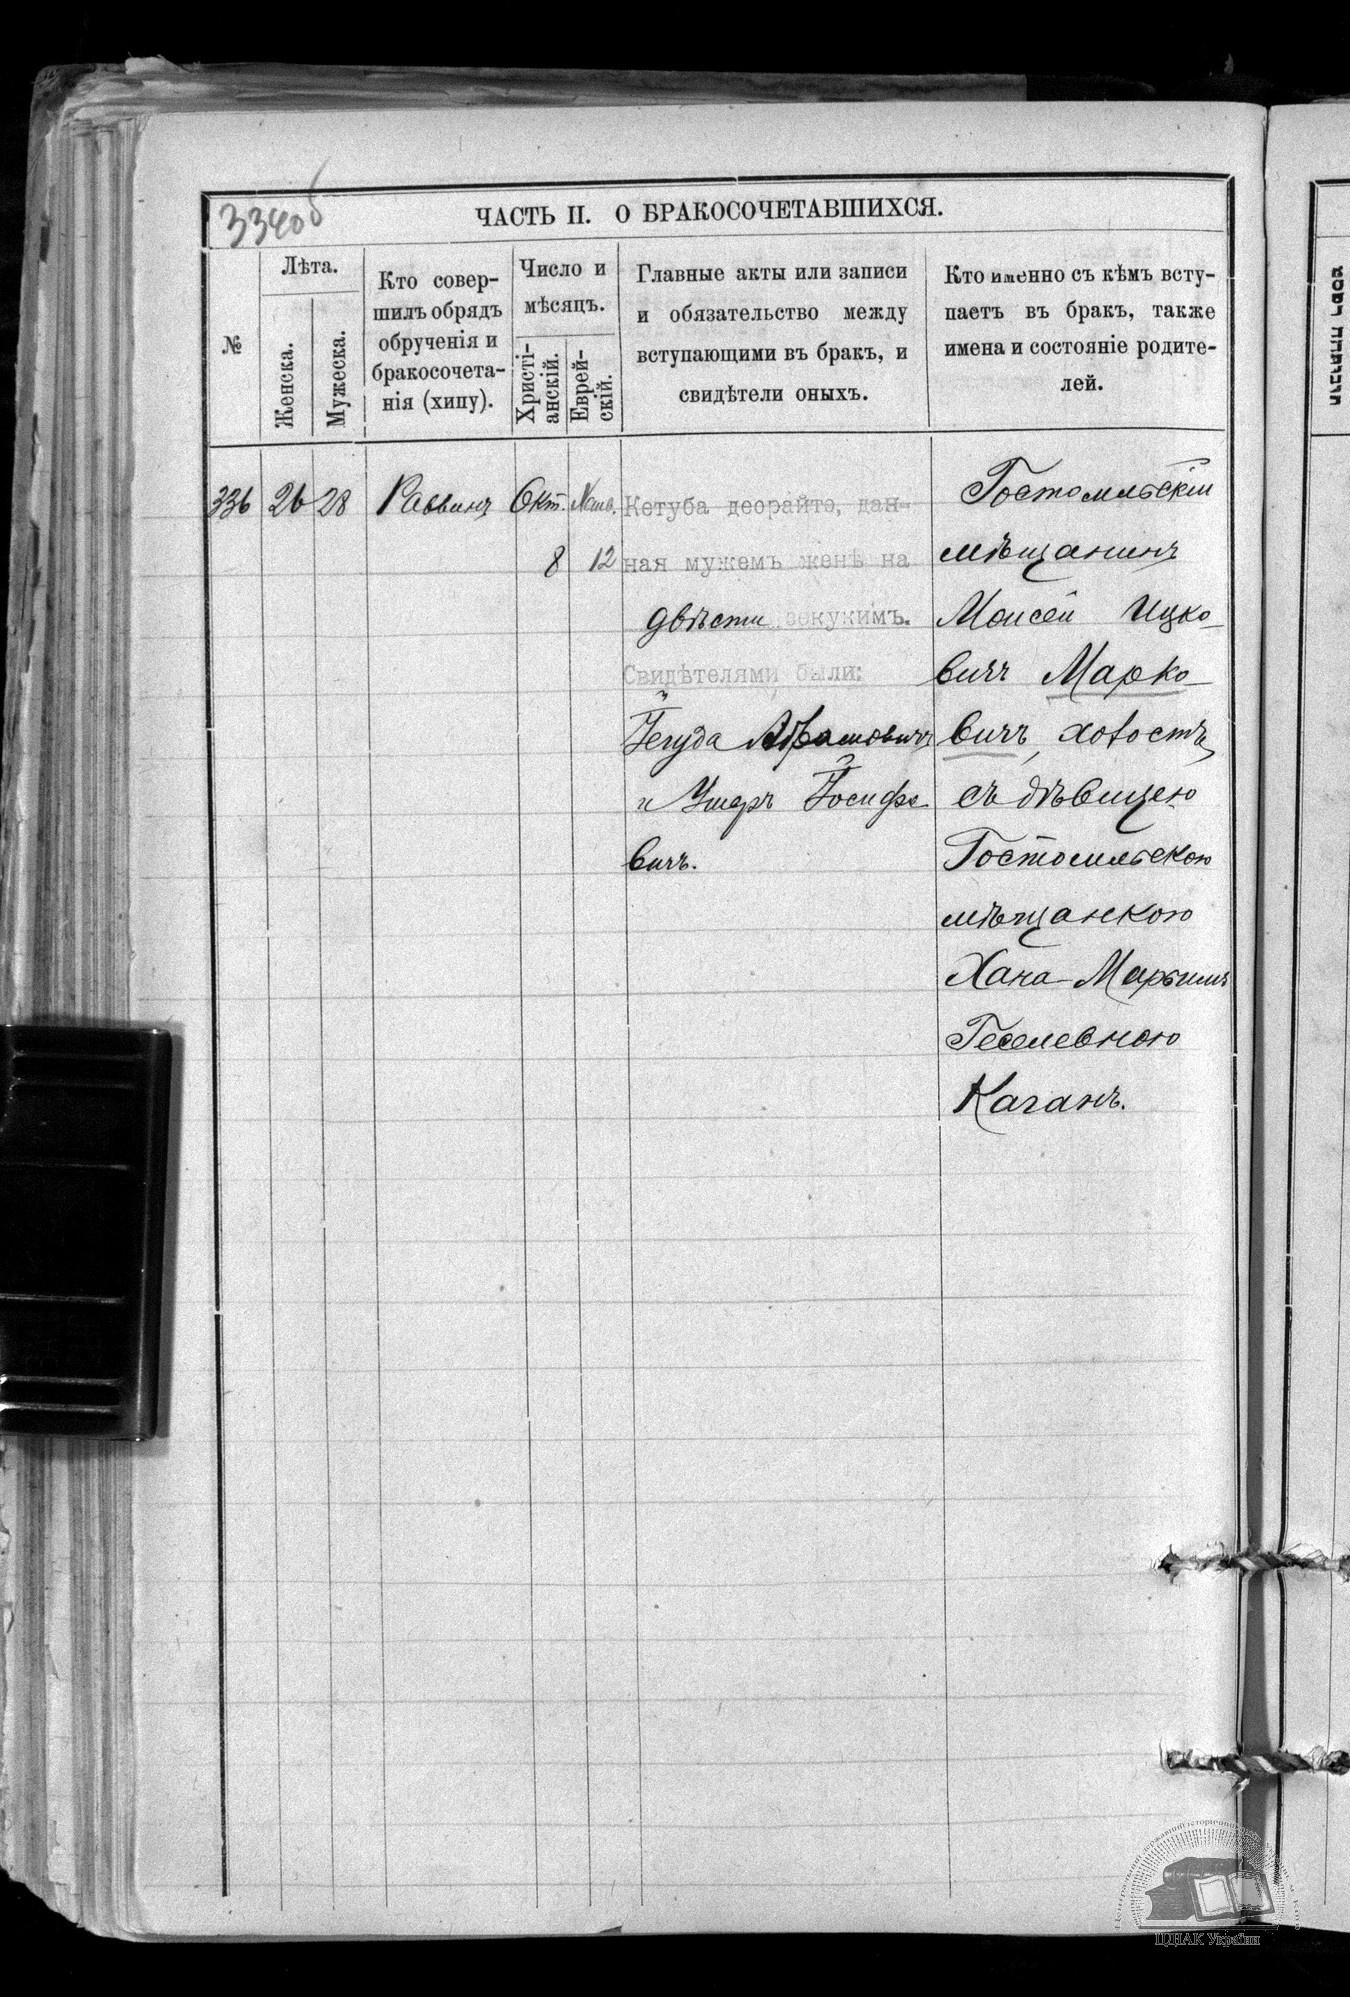 334об
ЧАСТЬ II. О БРАКОСОЧЕТАВШИХСЯ.
№
Лѣта.
Женска.
Мужеска.
Кто совер-
шилъ обрядъ
обрученія и
бракосочета-
нія (хипу).
Число и
мѣсяцъ.
Христі-
анскій.
Еврей-
скій.
Главные акты или записи
и обязательство между
вступающими въ бракъ, и
свидѣтели оныхъ.
Кто именно съ кѣмъ всту-
паетъ въ бракъ, также
имена и состояніе родите-
лей.
336 26 28 Раввинъ Окт.
8 12
Кетуба деорайте, дан-
ная мужемъ женѣ на
двѣсти зекукимъ.
Свидѣтелями были:
Іегуда Абрамовичъ
и Ушеръ Іосифо
вичъ.
Гостомльскій
мѣщанинъ
Моисей Ицко-
вичъ Марко-
вичъ, холостъ,
съ дѣвицею
Гостомльскою
мѣщанкою
Хана-Марьимъ
Геселевною
Каганъ.
ЦДІАК України